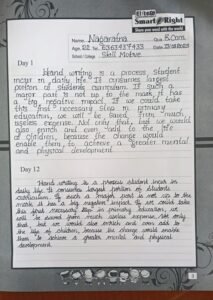 Smart Right
Share your world with the world
Name Nagaratna Std B.Com
Age 22 Tel 6363437433 Date
School / College Skill Mohre
Day 1
Hand writing is a process student
incur in daily life. It consumes largest
portion of students curriculum. If such a
major part is not up to the mark, it has
a big negative impact. If we could take
this first necessary step in primary
education, we will be saved from much
useless exercise. Not only that but we would
also enrich and even add to the life
of children, because the change would
enable them to achieve a greater mental
and physical development
Day 12
Hand writing is a process student incur in
daily life. It consumes largest portion of students
curriculum. If such a major part is not up to the
mark, it has a big negative impact. If we could take
this first necessary step in primary education, we
will be saved from much useless exercise. Not only
that, but we would also enrich and even add to the
life of children, because the change would enable
them to achieve a greater mental and physical
development.